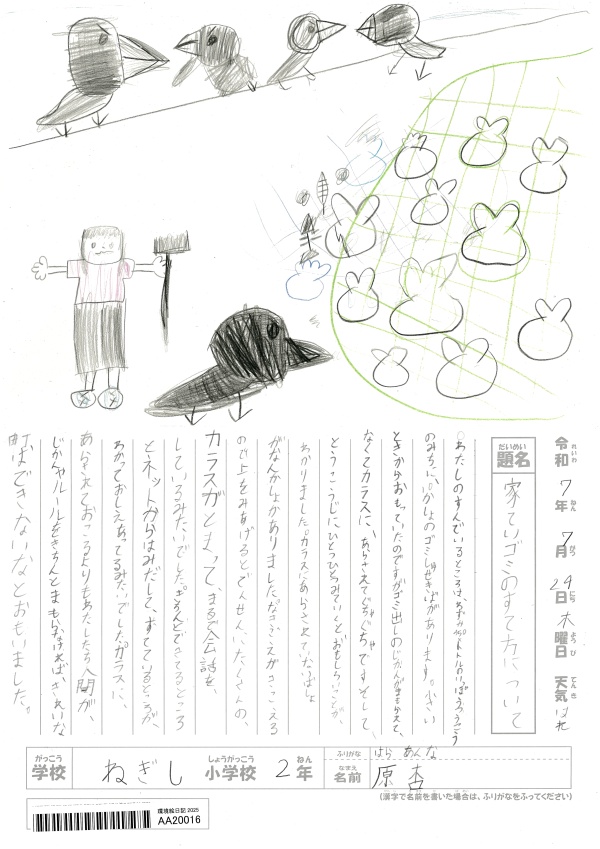 令和7年7月24日木曜日 天気 はれ
れいわ ねん がつ にち ようび てんき
だいめい
題名
家ていゴミのすて方について
あたしのすんでいるところは、
のみちに、
しょのゴミしゅうせきばがあります。小さい
ときからおもっていたのですがゴミ出しの
じかんがまもらえて、
なくてカラスに、あらさえてぐちゃぐちゃです。そして、
どうろこうじにひとつひとつみていくとおもしろいことが、
わかりました。カラスにあらされていないばしょ
がなんかしょかありました。
なきごえがきこえる
ので上をみあげるとでんせんに、たくさんの、
カラスがとまって、まるで会話を、
しているみたいでした。
きちんとできてるところ
とネットからはみだして、すてているところが、
わかっておしえあってるみたいでした。カラスに、
あらされておこるよりもあたしたち人間が、
じかんやルールをきちんとまもらなければ、きれいな
町はできないなとおもいました。
がっこう しょうがっこう ねん
学校 ねぎし 小学校 2年
ふりがな はら あんな
なまえ
名前 原 杏
(漢字で名前を書いた場合は、ふりがなをふってください)
環境絵日記 2025
AA20016